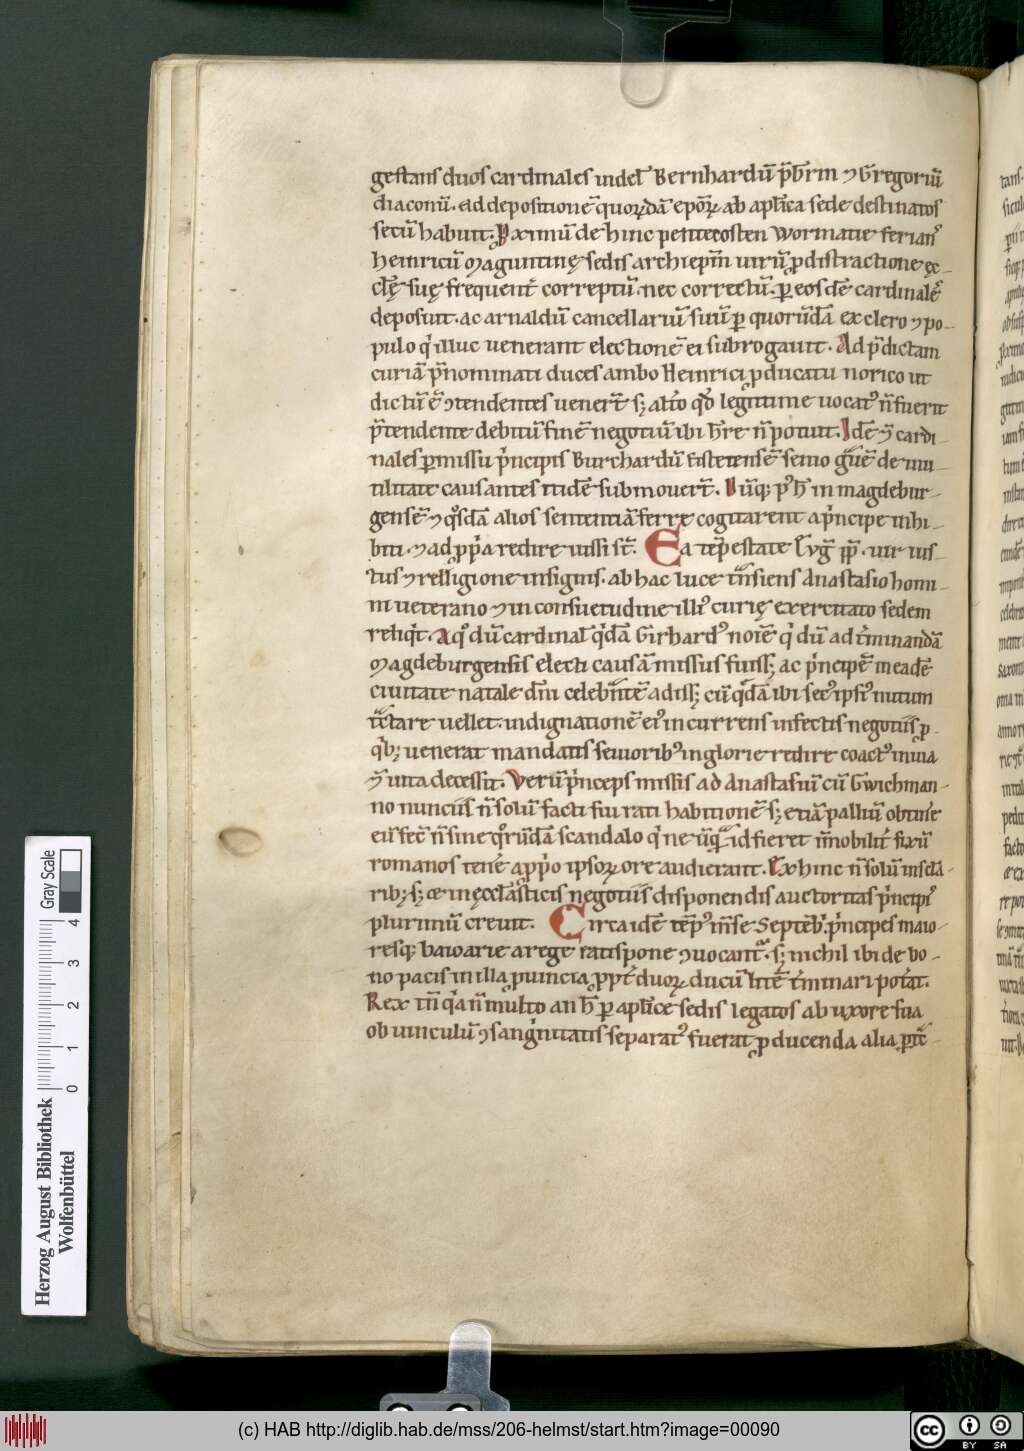 gestans duos cardinales indel̄ Bernhardū p̄b̄rm ⁊ Gregoriū
diaconū. ad depositionē quoꝝdā ep̄oꝝ ab ap̄lica sede destinatos
secū habuit. Proximū dehinc pentecosten Wormatie ferians
heinricū Maguntinę sedis archiep̄m uirū ꝓ distractione ęc-
clę̄ suę frequent̄ correptū. nec correctū. ꝑ eosdē cardinales
deposuit. ac arnaldū cancellariū suū ꝑ quorūdā ex clero ⁊ po-
pulo qͥ illuc uenerant electionē ei subrogauit. Ad p̄dictam
curiā p̄nominati duces ambo Heinrici ꝓ ducatu norico ut
dictū ē ꝯtendentes uener̄t. sꝫ alt̄o qd̄ legitime uocatꝰ n̄ fuerit
p̄tendente debitū finē negotiū ibi h̄re n̄ potuit. Idē ⁊ cardi-
nales ꝑmissu pͥncipis Burchardū Eistetensē senio gͣuē de inu-
tilitate causantes itidē submouer̄t. Iūqꝫ pꝰ h̄ in magdebur-
gensē ⁊ qͦsdā alios sententiā ferre cogitarent a pͥncipe inhi-
biti. ⁊ ad ꝓpͥa redire iussi st̄. Ea tēpestate Eug̅ p̅p̅. uir ius-
tus ⁊ religione insignis. ab hac luce tͣnsiens Anastasio homi-
ni ueterano ⁊ in consuetudine illiꝰ curię exercitato sedem
reliqͥt. Aqͦ dū cardinal̄ qͥdā Girhardꝰ noīe qͥ dū ad t̄minandā
Magdeburgensis electi causā missus fuissꝫ ac pͥncipē in eadē
ciuitate natale dn̄i celebͣntē adissꝫ cū qͥdā ibi sec̄ ipsiꝰ nutum
tͣctare uellet. indignationē eiꝰ incurrens infectis negotiis ꝓ
qͥbꝫ uenerat mandatis seuioribꝰ inglorie redire coactꝰ in uia
⁊ uita decessit. Verū pͥnceps missis ad Anastasiū cū Gwichman-
no nunciis n̄ solū facti sui rati habitionē sꝫ etiā palliū obtin̄e
eū fec̄ n̄ sine qͦrūdā scandalo qͥ ne ūqͣ id fieret īmobilit̄ fixū
romanos ten̄e a ꝓpͥo ipsoꝝ ore audierant. Exhinc n̄ solū in secla-
ribꝫ. sꝫ & in ęcclāsticis negotiis disponendis auctoritas pͥncipiꝰ
plurimū creuit. Circa idē tēpꝰ m̄se Septēbͥ. pͥncipes maio-
resqꝫ bawarie a rege ratispone ꝯuocant̄ᵘ. sꝫ nichil ibi de bo-
no pacis in illa ꝓuincia ꝓpt̄ duoꝝ ducū litē t̄minari pot̄at.
Rex tn̄ qͥa n̄ multo an̄ h̄ ꝑ ap̄lice sedis legatos ab uxore sua
ob uinculū ꝯsangͥnitatis separatꝰ fuerat ꝓ ducenda alia ꝑtͣc-
Herzog August Bibliothek
Wolfenbüttel
Gray Scale
0 1 2 3 4
(c) HAB http://diglib.hab.de/mss/206-helmst/start.htm?image=00090
cc BY SA